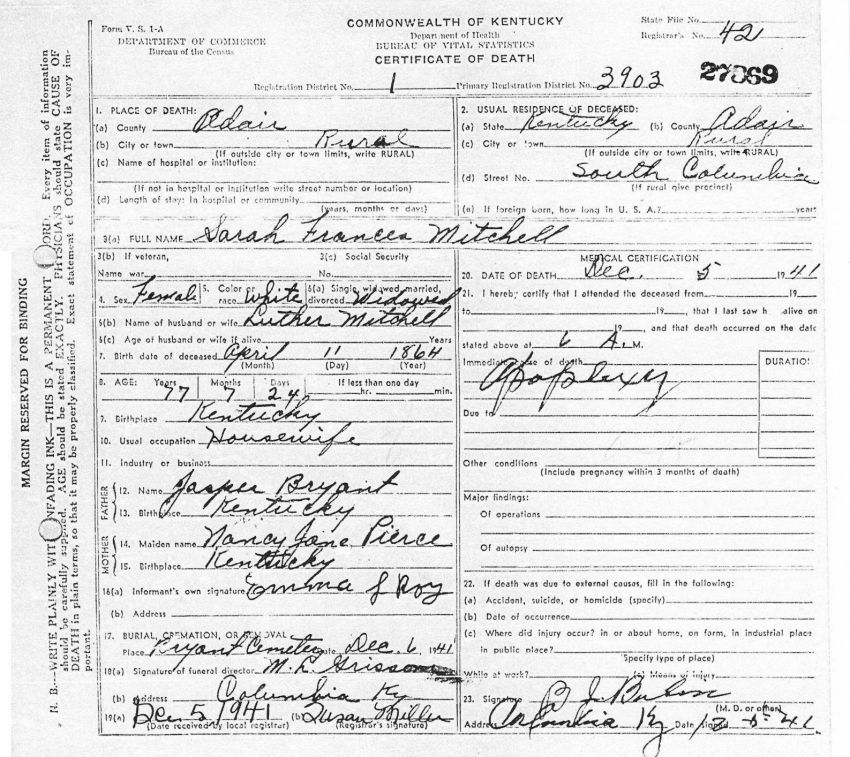 Form V. S. 1-A
DEPARTMENT OF COMMERCE
Bureau of the Census
COMMONWEALTH OF KENTUCKY
Department of Health
BUREAU OF VITAL STATISTICS
CERTIFICATE OF DEATH
State File No.
Registrar's No. 42
Registration District No. 1 Primary Registration District No. 3903
27869
MARGIN RESERVED FOR BINDING
N. B.—WRITE PLAINLY WITH UNFADING INK—THIS IS A PERMANENT RECORD. Every item of information
should be carefully supplied. AGE should be stated EXACTLY. PHYSICIANS should state CAUSE OF
DEATH in plain terms, so that it may be properly classified. Exact statement of OCCUPATION is very im-
portant.
1. PLACE OF DEATH:
(a) County Adair
(b) City or town Rural
(If outside city or town limits, write RURAL)
(c) Name of hospital or institution:
(If not in hospital or institution write street number or location)
(d) Length of stay: In hospital or community
(years, months or days)
2. USUAL RESIDENCE OF DECEASED:
(a) State Kentucky (b) County Adair
(c) City or town Rural
(If outside city or town limits, write RURAL)
(d) Street No. South Columbia
(If rural give precinct)
(e) If foreign born, how long in U. S. A.? years
3(a) FULL NAME Sarah Frances Mitchell
3(b) If veteran, 3(c) Social Security
Name war No.
4. Sex Female 5. Color or race White 6(a) Single, widowed, married, divorced Widowed
6(b) Name of husband or wife Luther Mitchell
6(c) Age of husband or wife if alive Years
7. Birth date of deceased April 11 1864
(Month) (Day) (Year)
8. AGE: Years Months Days If less than one day
77 7 24 hr. min.
9. Birthplace Kentucky
10. Usual occupation Housewife
11. Industry or business
FATHER
12. Name Jasper Bryant
13. Birthplace Kentucky
MOTHER
14. Maiden name Nancy Jane Pierce
15. Birthplace Kentucky
16(a) Informant's own signature Emma J Roy
(b) Address
17. BURIAL, CREMATION, OR REMOVAL
Place Bryant Cemetery Date Dec. 6, 1941
18(a) Signature of funeral director M. L. Grissom
(b) Address Columbia Ky
19(a) Dec 5, 1941 (b) Susan Miller
(Date received by local registrar) (Registrar's signature)
MEDICAL CERTIFICATION
20. DATE OF DEATH Dec. 5 1941
21. I hereby certify that I attended the deceased from 19
to 19, that I last saw h alive on
19, and that death occurred on the date
stated above at 6 A. M.
Immediate cause of death DURATION
Apoplexy
Due to
Other conditions
(Include pregnancy within 3 months of death)
Major findings:
Of operations
Of autopsy
22. If death was due to external causes, fill in the following:
(a) Accident, suicide, or homicide (specify)
(b) Date of occurrence
(c) Where did injury occur? in or about home, on farm, in industrial place
in public place?
(Specify type of place)
While at work? (e) Means of injury
23. Signature B J
(M. D. or other)
Address Columbia Ky Date signed 12-5-41